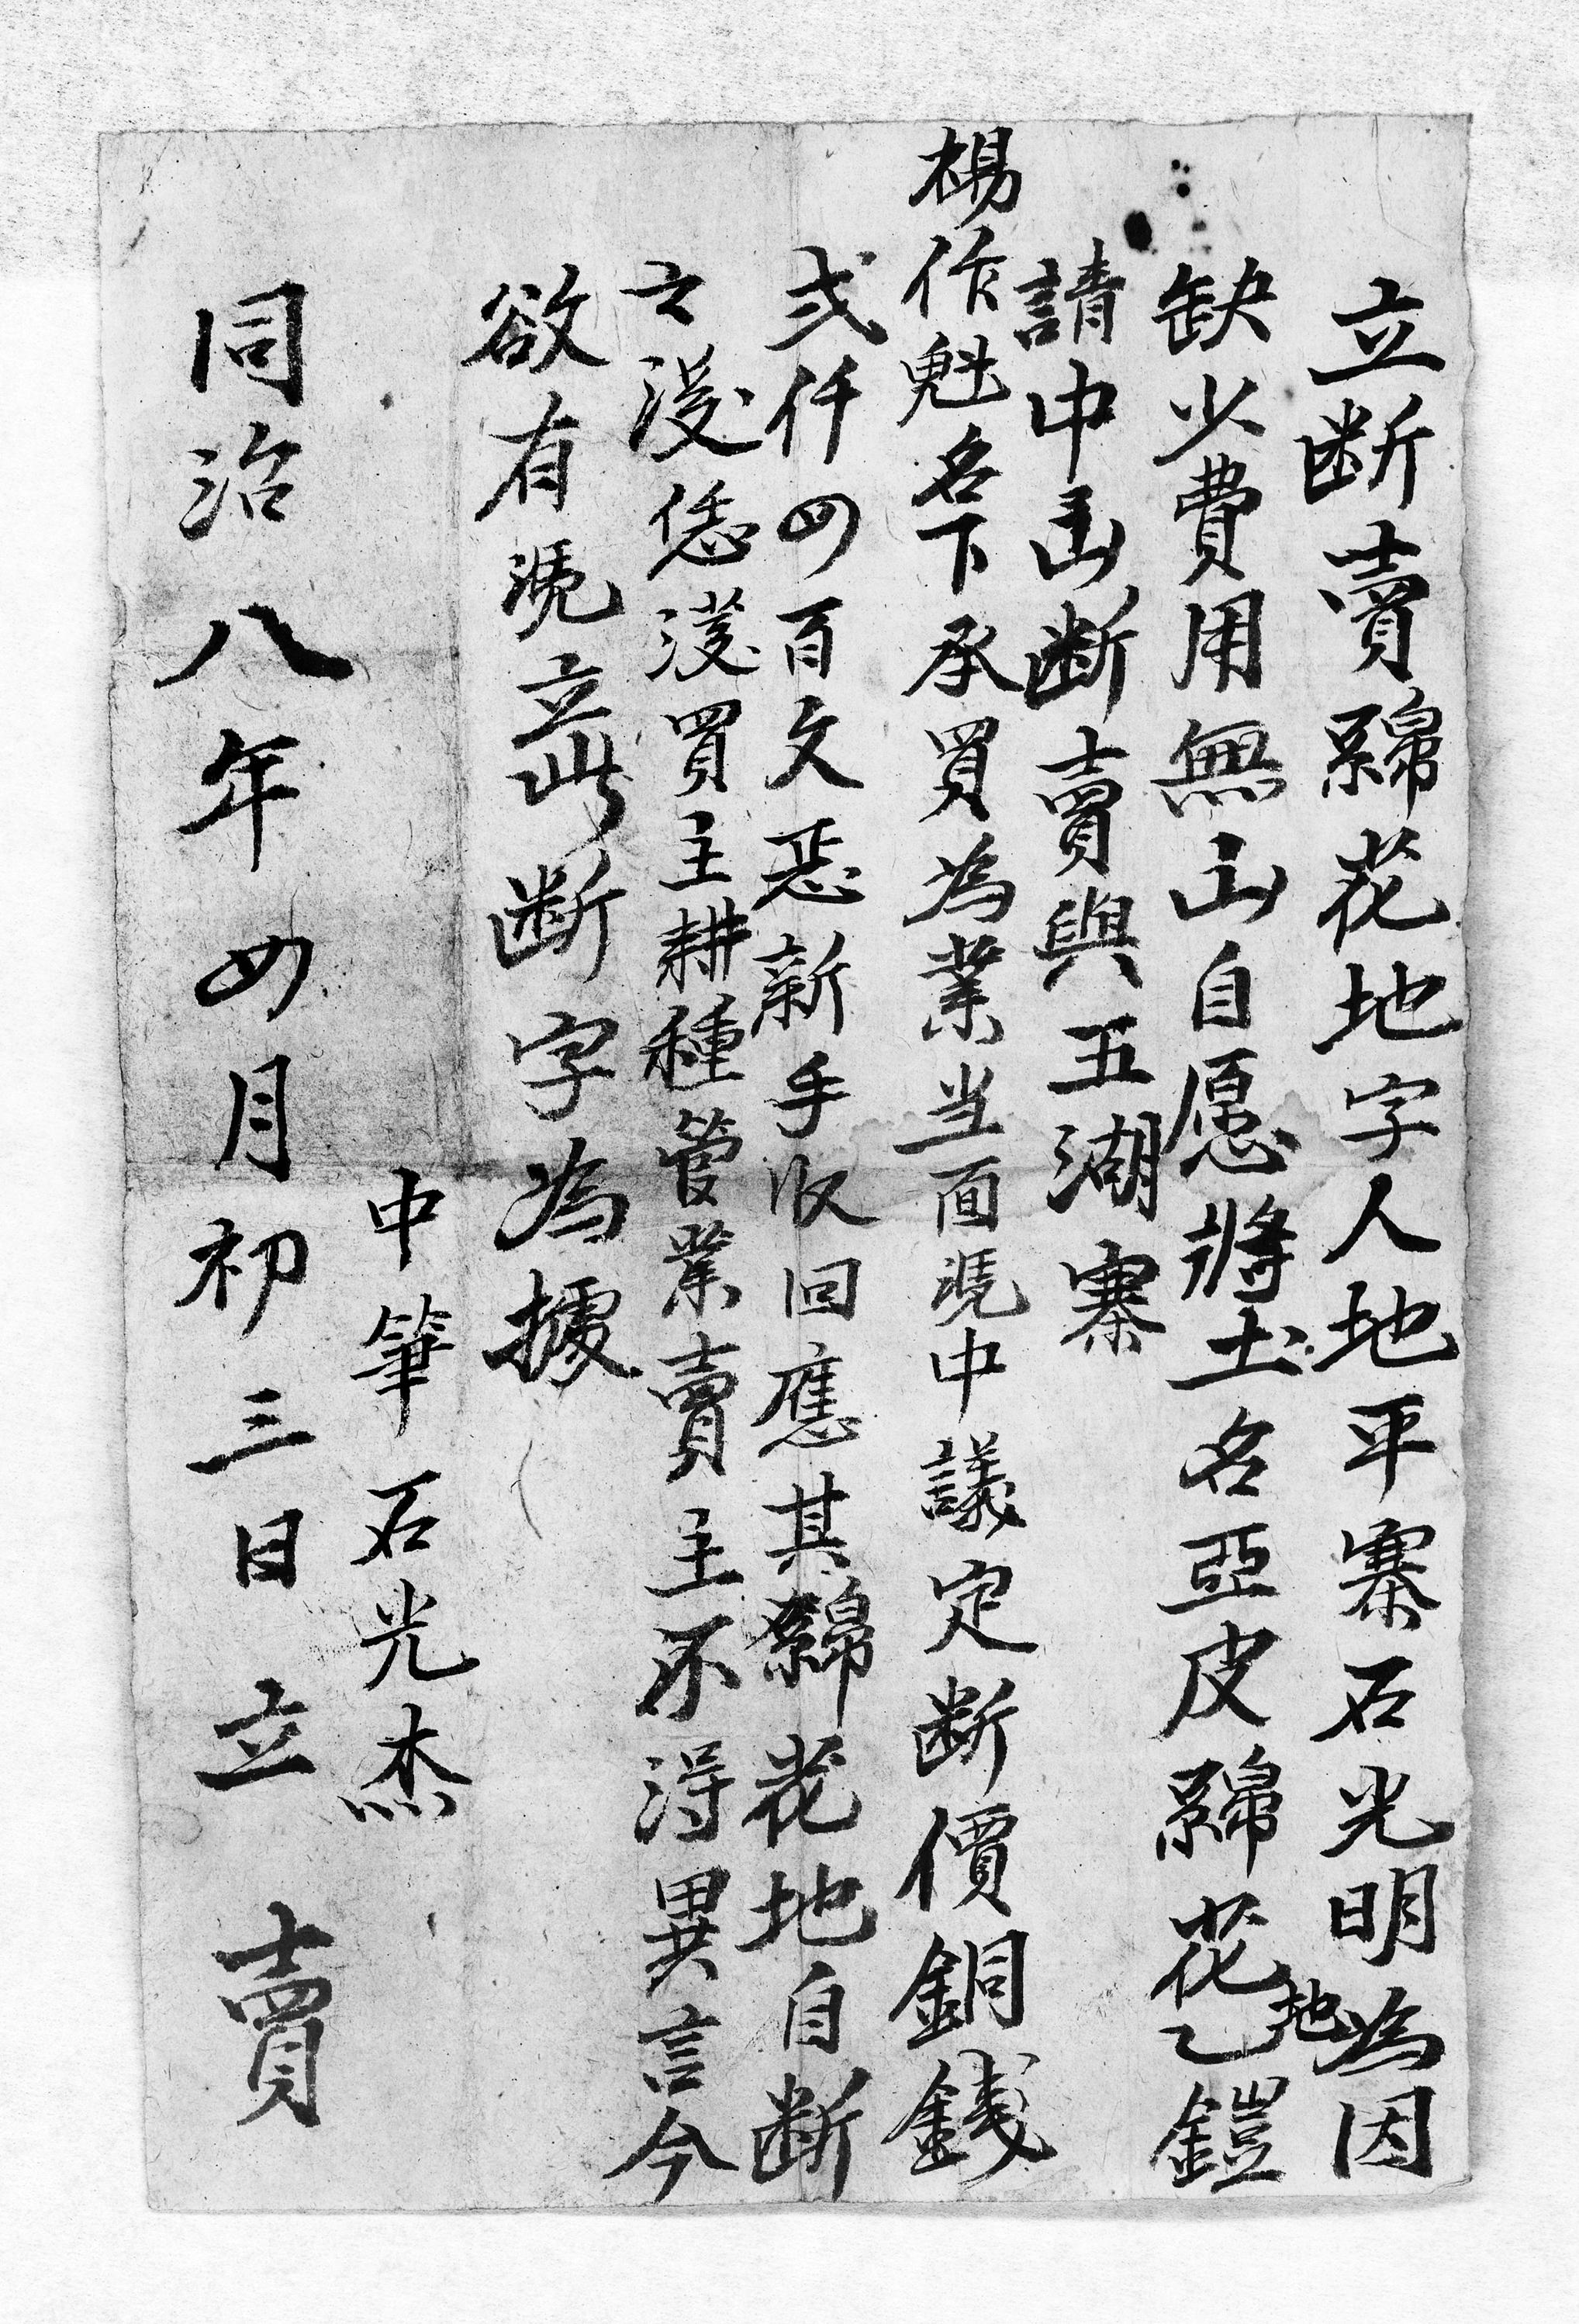 立断賣綿花地字人地平寨石光明為因
缺少費用無山自愿將土名亞皮綿花地乙鎧
請中出断賣與五湖寨
楊作魁名下承買為業当面凴中議定断價銅錢
弍仟四百文恶新手收回應其綿花地自断
之後恁後買主耕種管業賣主不淂異言今
欲有凴立此断字為據
中筆石光杰
同治八年四月初三日立賣